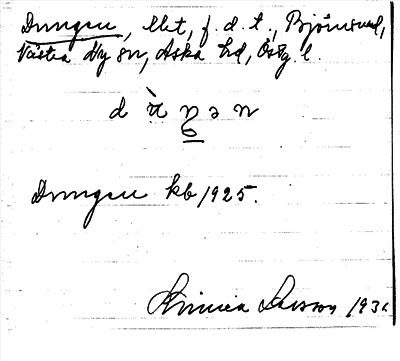 Dungen, lht, f. d. t., Björnsund,
Västra Ny sn, Aska hd, Östg l.
d ù̀ n ə n
Dungen kb 1925.
Linnea Larsson 193